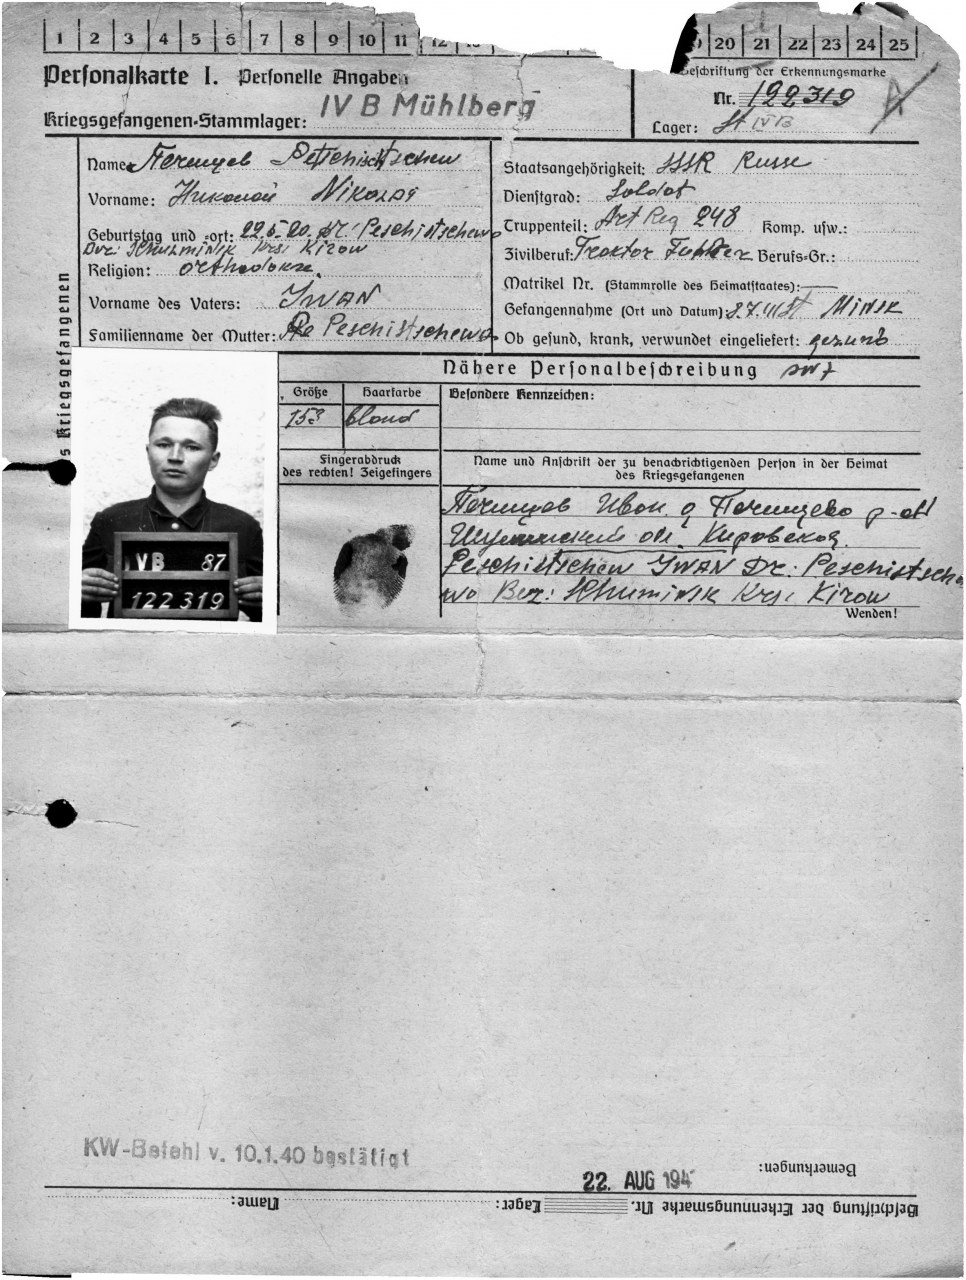 1 2 3 4 5 6 7 8 9 10 11 12 20 21 22 23 24 25
Personalkarte I. Personelle Angaben
IV B Mühlberg
Kriegsgefangenen-Stammlager:
Beschriftung der Erkennungsmarke
Nr. 122319
Lager: St IV B
Name:
Vorname: Николай Nikolaj
Geburtstag und -ort: 22.5.20. Dr: Peschistschewo
Krs: Kirow
Religion: orthodoxe.
Vorname des Vaters: Iwan
Familienname der Mutter: Peschistschewa
Staatsangehörigkeit: SSSR Russe
Dienstgrad: Soldat
Truppenteil: Art Reg 248 Komp. usw.:
Zivilberuf: Traktor Berufs-Gr.:
Matrikel Nr. (Stammrolle des Heimatstaates): —
Gefangennahme (Ort und Datum): Minsk
Ob gesund, krank, verwundet eingeliefert: gesund
des Kriegsgefangenen
Nähere Personalbeschreibung
Größe Haarfarbe Besondere Kennzeichen:
153 blond
Fingerabdruck
des rechten! Zeigefingers
Name und Anschrift der zu benachrichtigenden Person in der Heimat
des Kriegsgefangenen
Иван
Кировская
Peschistschew Iwan Dr: Peschistsche
wo Bez: Schuminsk Krs: Kirow
Wenden!
VB 87
122319
KW-Befehl v. 10.1.40 bestätigt
22. AUG 194
Bemerkungen:
Beschriftung der Erkennungsmarke Nr. Lager: Name: